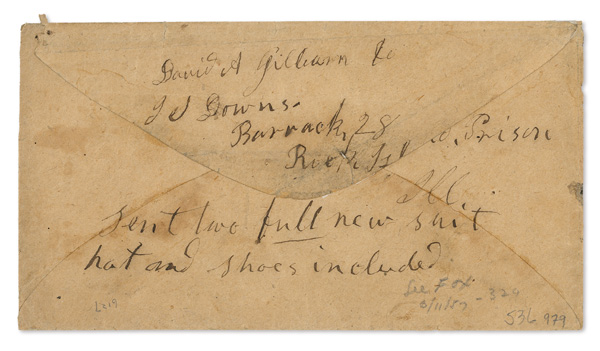 David A Gilliam to
J J Downs.
Barrack 28
Rock Isl d. Prison
Ill.
Sent two full new suit
hat and shoes included.
See Fox
3/11/57 - 324
L219
S36 979